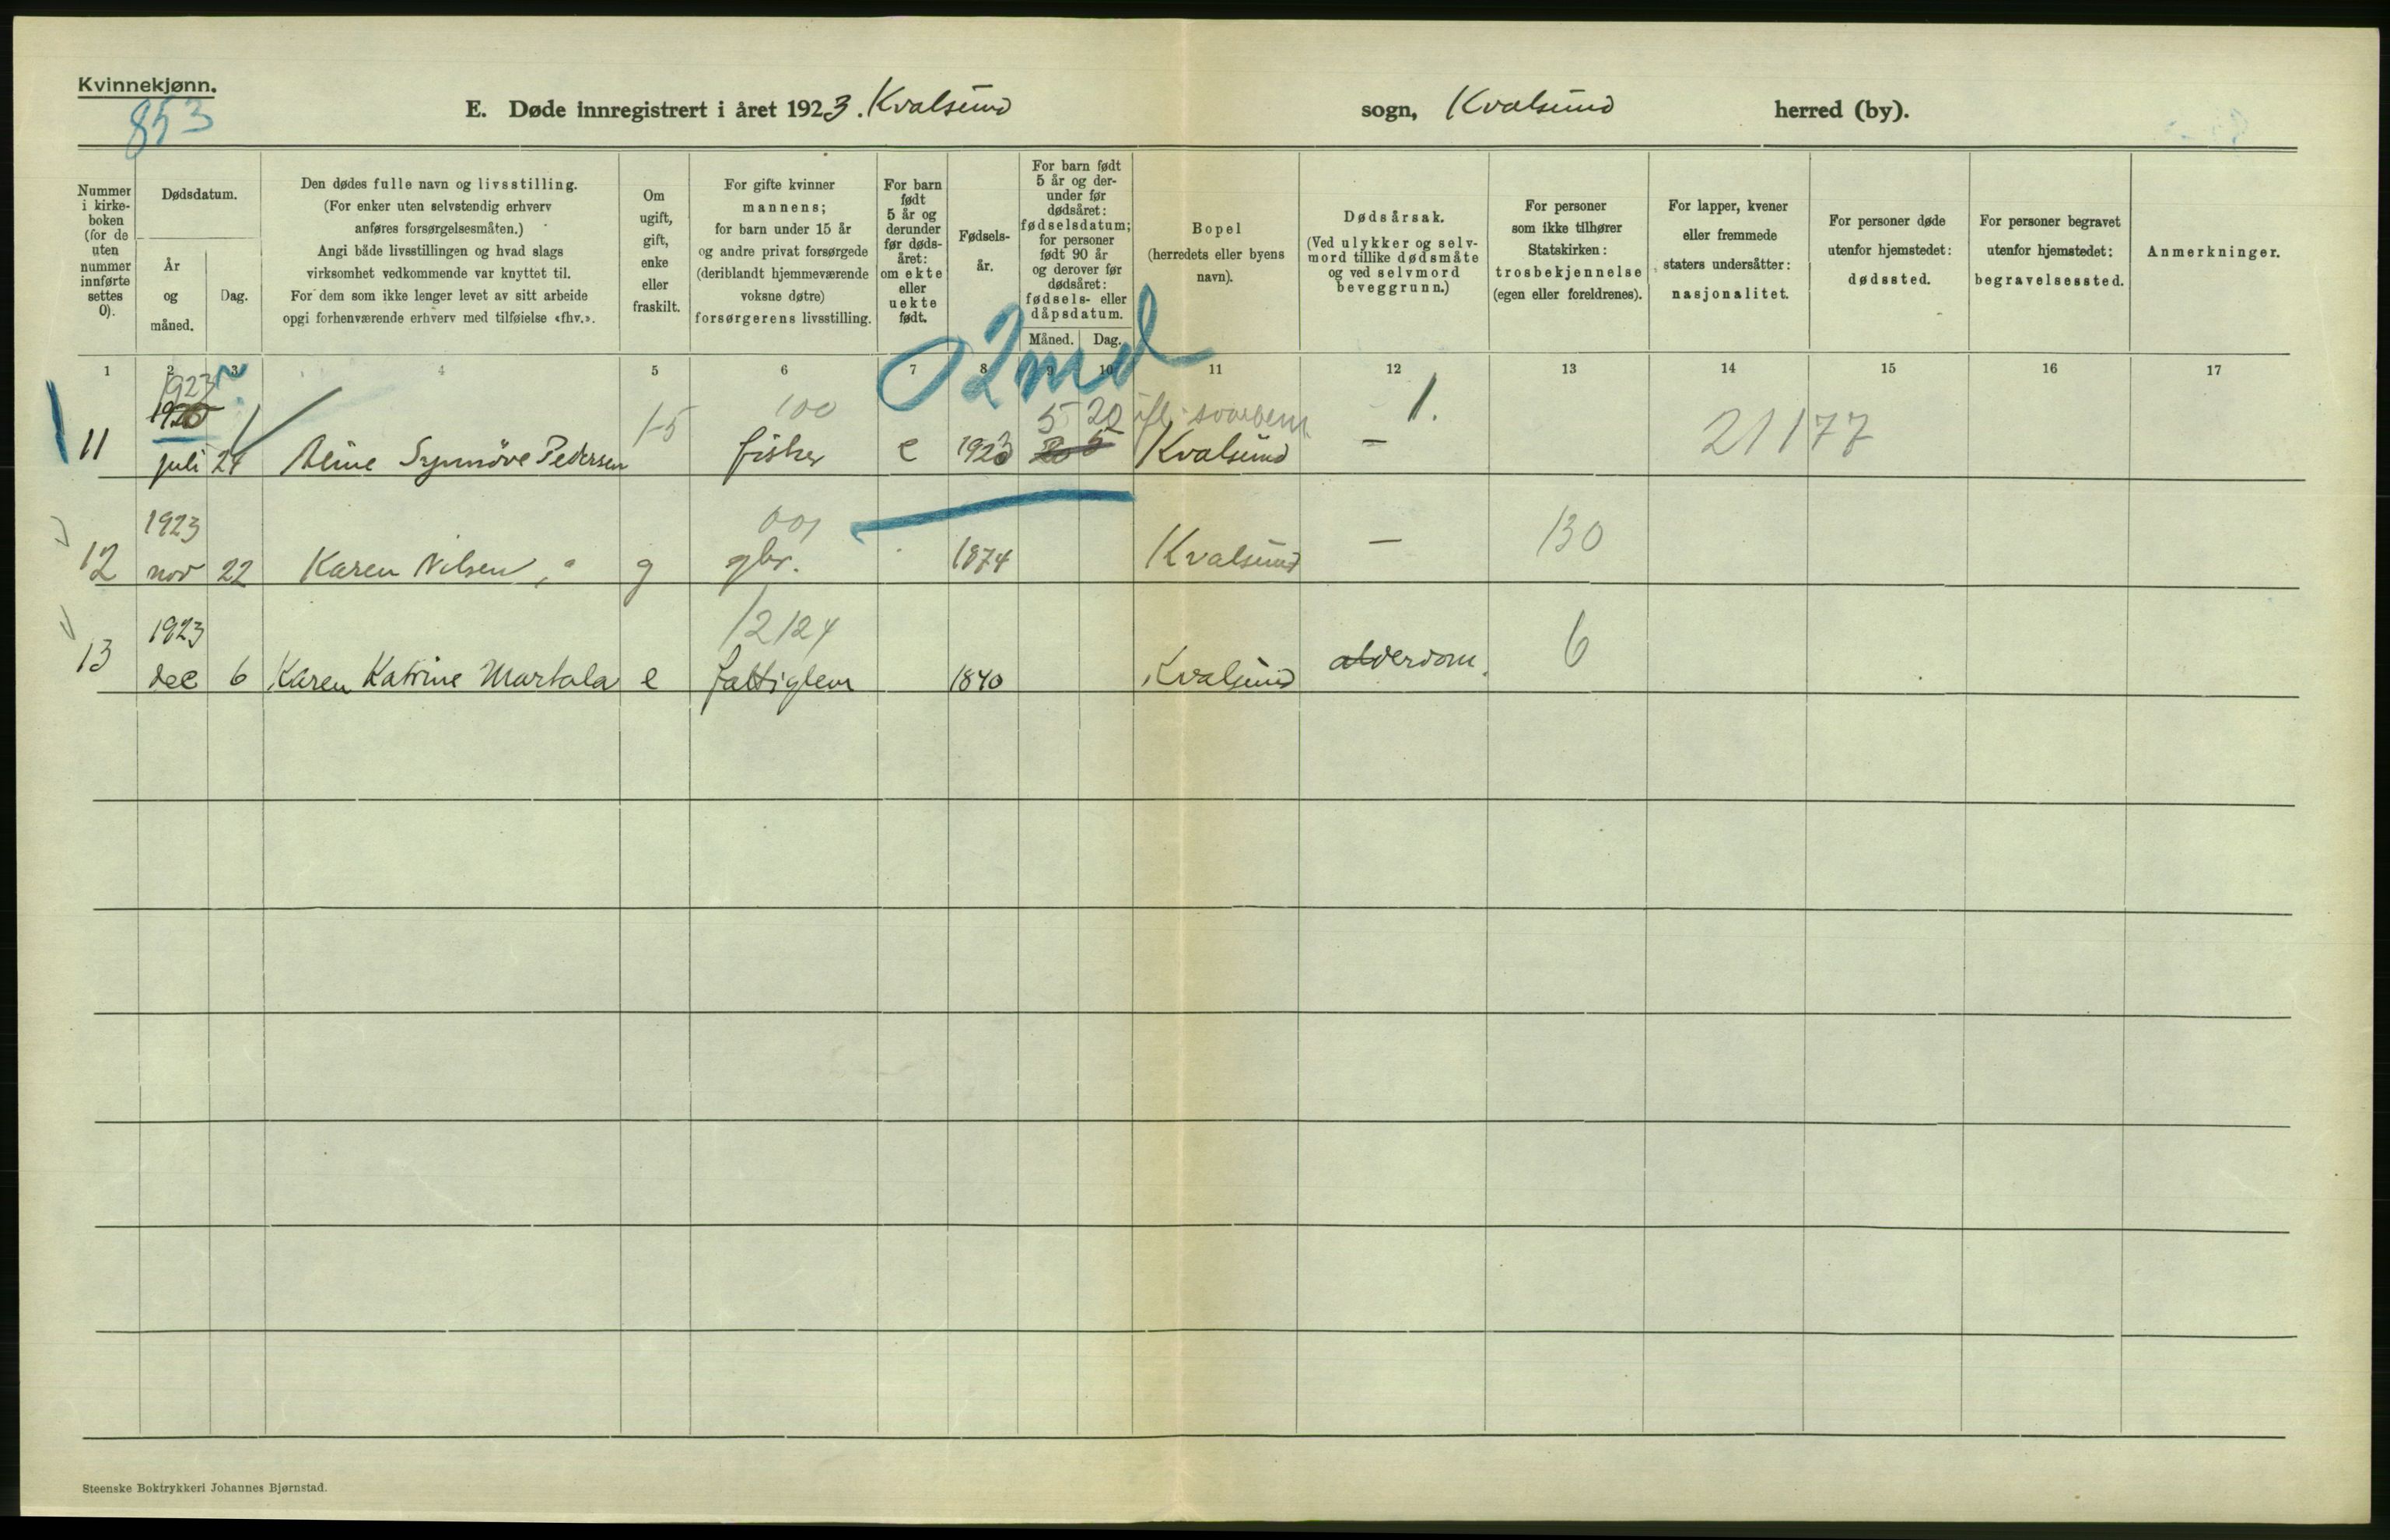 Kvinnekjønn.
853
E. Døde innregistrert i året 1923. Kvalsund sogn, Kvalsund herred (by).
Nummer i kirke-boken (for de uten nummer innførte settes 0).
Dødsdatum.
År og måned.
Dag.
Den dødes fulle navn og livsstilling.
(For enker uten selvstendig erhverv
anføres forsørgelsesmåten.)
Angi både livsstillingen og hvad slags
virksomhet vedkommende var knyttet til.
For dem som ikke lenger levet av sitt arbeide
opgi forhenværende erhverv med tilføielse «fhv.».
Om ugift, gift, enke eller fraskilt.
For gifte kvinner
mannens;
for barn under 15 år
og andre privat forsørgede
(deriblandt hjemmeværende
voksne døtre)
forsørgerens livsstilling.
For barn født 5 år og derunder før døds-året: om ekte eller uekte født.
Fødsels-år.
For barn født
5 år og der-
under før
dødsåret:
fødselsdatum;
for personer
født 90 år
og derover før
dødsåret:
fødsels- eller
dåpsdatum.
Måned. Dag.
Bopel
(herredets eller byens
navn).
Dødsårsak.
(Ved ulykker og selv-
mord tillike dødsmåte
og ved selvmord
beveggrunn.)
For personer
som ikke tilhører
Statskirken:
trosbekjennelse
(egen eller foreldrenes).
For lapper, kvener
eller fremmede
staters undersåtter:
nasjonalitet.
For personer døde
utenfor hjemstedet:
dødssted.
For personer begravet
utenfor hjemstedet:
begravelsessted.
Anmerkninger.
1 2 3 4 5 6 7 8 9 10 11 12 13 14 15 16 17
0 2 md
1923 1-5 100 5 20 1. 21177
1920
11 juli 24 Synnöve Pedersen fisker e 1923 5 Kvalsund –
1923 001 130
12 nov 22 Karen Nilsen, g gbr. 1874 Kvalsund –
1923 12124 6
13 dec 6 Karen Katrine Martala e fattiglem 1840 Kvalsund alderdom.
Steenske Boktrykkeri Johannes Bjørnstad.